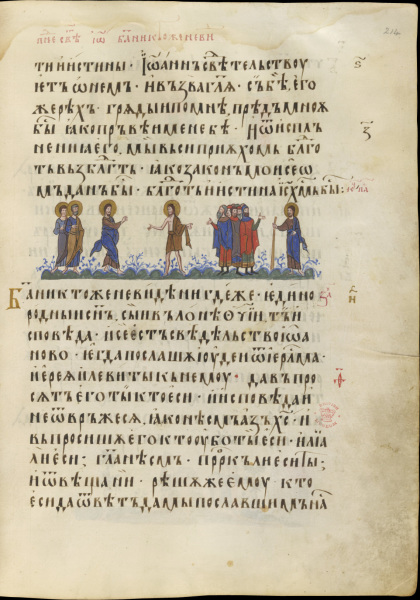 тиннистины · Їѡаннъсвѣтельствоу
ѥтъѡнемъ · ивъзвагл҃ѧ · сьбѣ, его
жерѣхъ · грѧдыипомнѣ, прѣдъмноѫ
бы҇ · ꙗкопръвѣименебѣ · Иѿиспль
ненїаего, мывьсиприѧхомъ · благо
тьвъзблг҃ть · ꙗкозаконъмоисеѡ
мъданъбы҇ · блг҃тьиистинаі҃сх҃мьбы҇ :
Б҃аниктоженевидѣнигдеже · ѥдино
родныисн҃ъ, сынвълонѣѡч҃и, тъи
споведа · исеестъсвѣдѣльствоиѡа
ново · ѥгдапослашѫіоудеиѿїерлма ·
иереѧилевитыкънемоу · давъпро
сѧтъеготыктоеси · Ииспо­ведаи
неѿвръжесѧ, ꙗконесмъазъх҃с · и
въпросишѫегоктооуботыеси · илїа
лиеси; гл҃анѣсмъ · прр҃окълиеситы;
иѿвѣщани · рѣшѫжеемоу кто
есидаѿвѣтъдамыпославшимъны